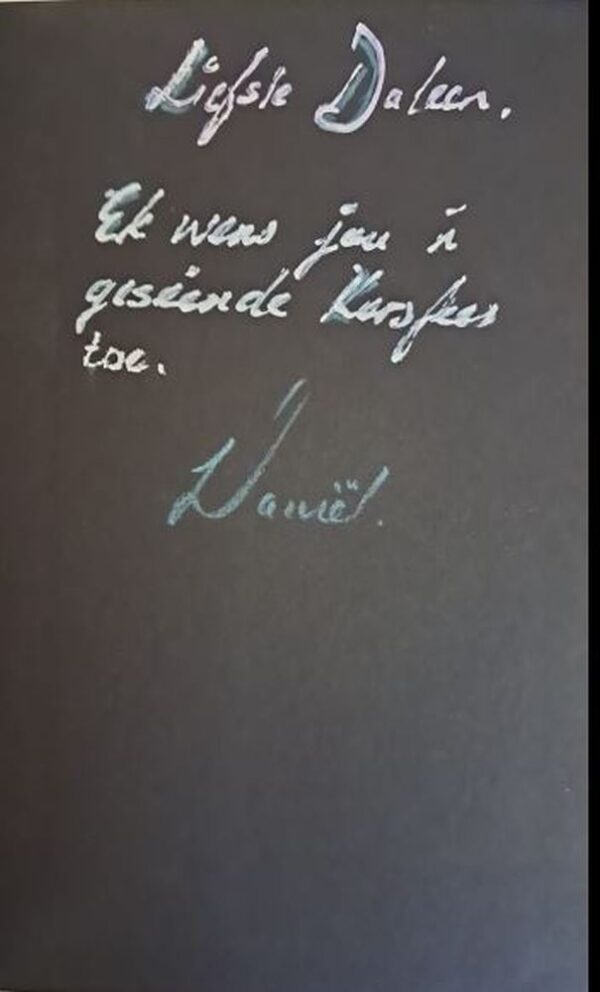 Liefste Daleen.
Ek wens jou 'n
geseënde Kersfees
toe.
Daniël.